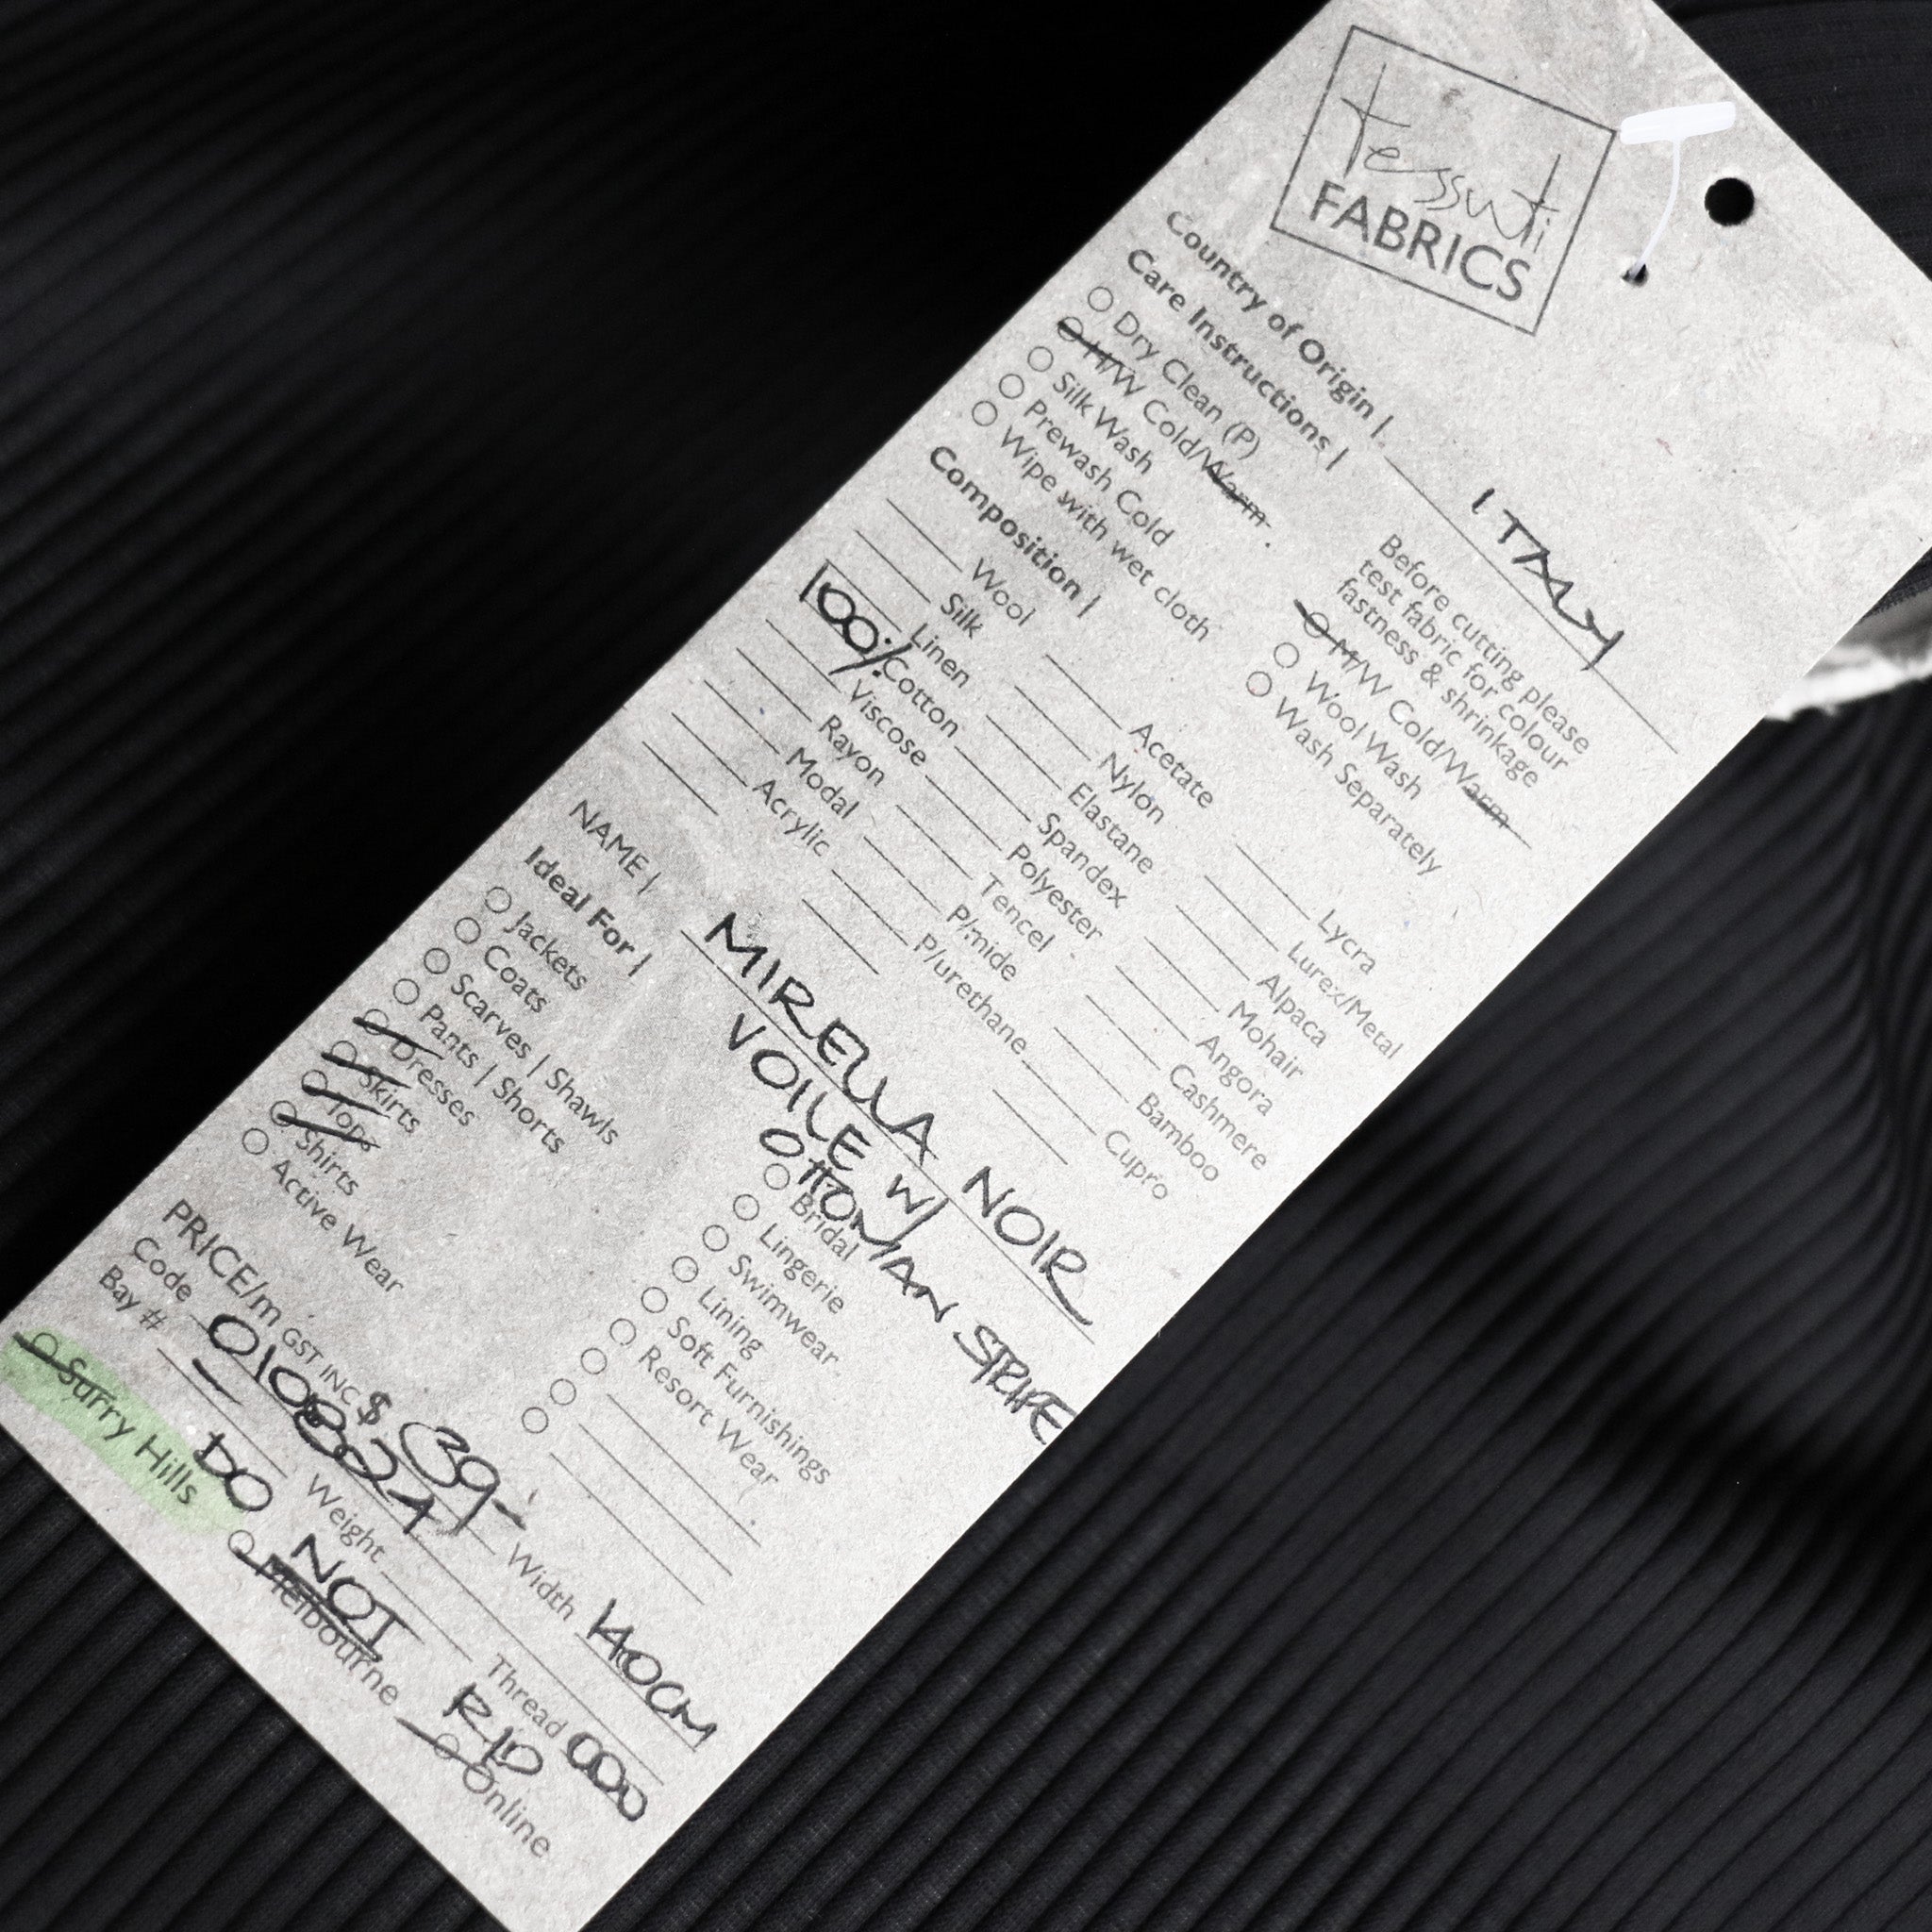 tessuti
FABRICS
Country of Origin | ITALY
Care Instructions |
Before cutting please
test fabric for colour
fastness & shrinkage
Dry Clean (P)
H/W Cold/Warm
Silk Wash
Prewash Cold
Wipe with wet cloth
M/W Cold/Warm
Wool Wash
Wash Separately
Composition |
Wool
Silk
Linen
100% Cotton
Viscose
Rayon
Modal
Acrylic
Acetate
Nylon
Elastane
Spandex
Polyester
Tencel
P/mide
P/urethane
Lycra
Lurex/Metal
Alpaca
Mohair
Angora
Cashmere
Bamboo
Cupro
NAME | MIRELLA NOIR
VOILE W/
OTTOMAN STRIPE
Ideal For |
Jackets
Coats
Scarves | Shawls
Pants | Shorts
Dresses
Skirts
Tops
Shirts
Active Wear
Bridal
Lingerie
Swimwear
Lining
Soft Furnishings
Resort Wear
PRICE/m GST INC $ 39-
Code 0108024 Width 140CM
Bay # Weight Thread 000
DO NOT RIP
Surry Hills Melbourne Online